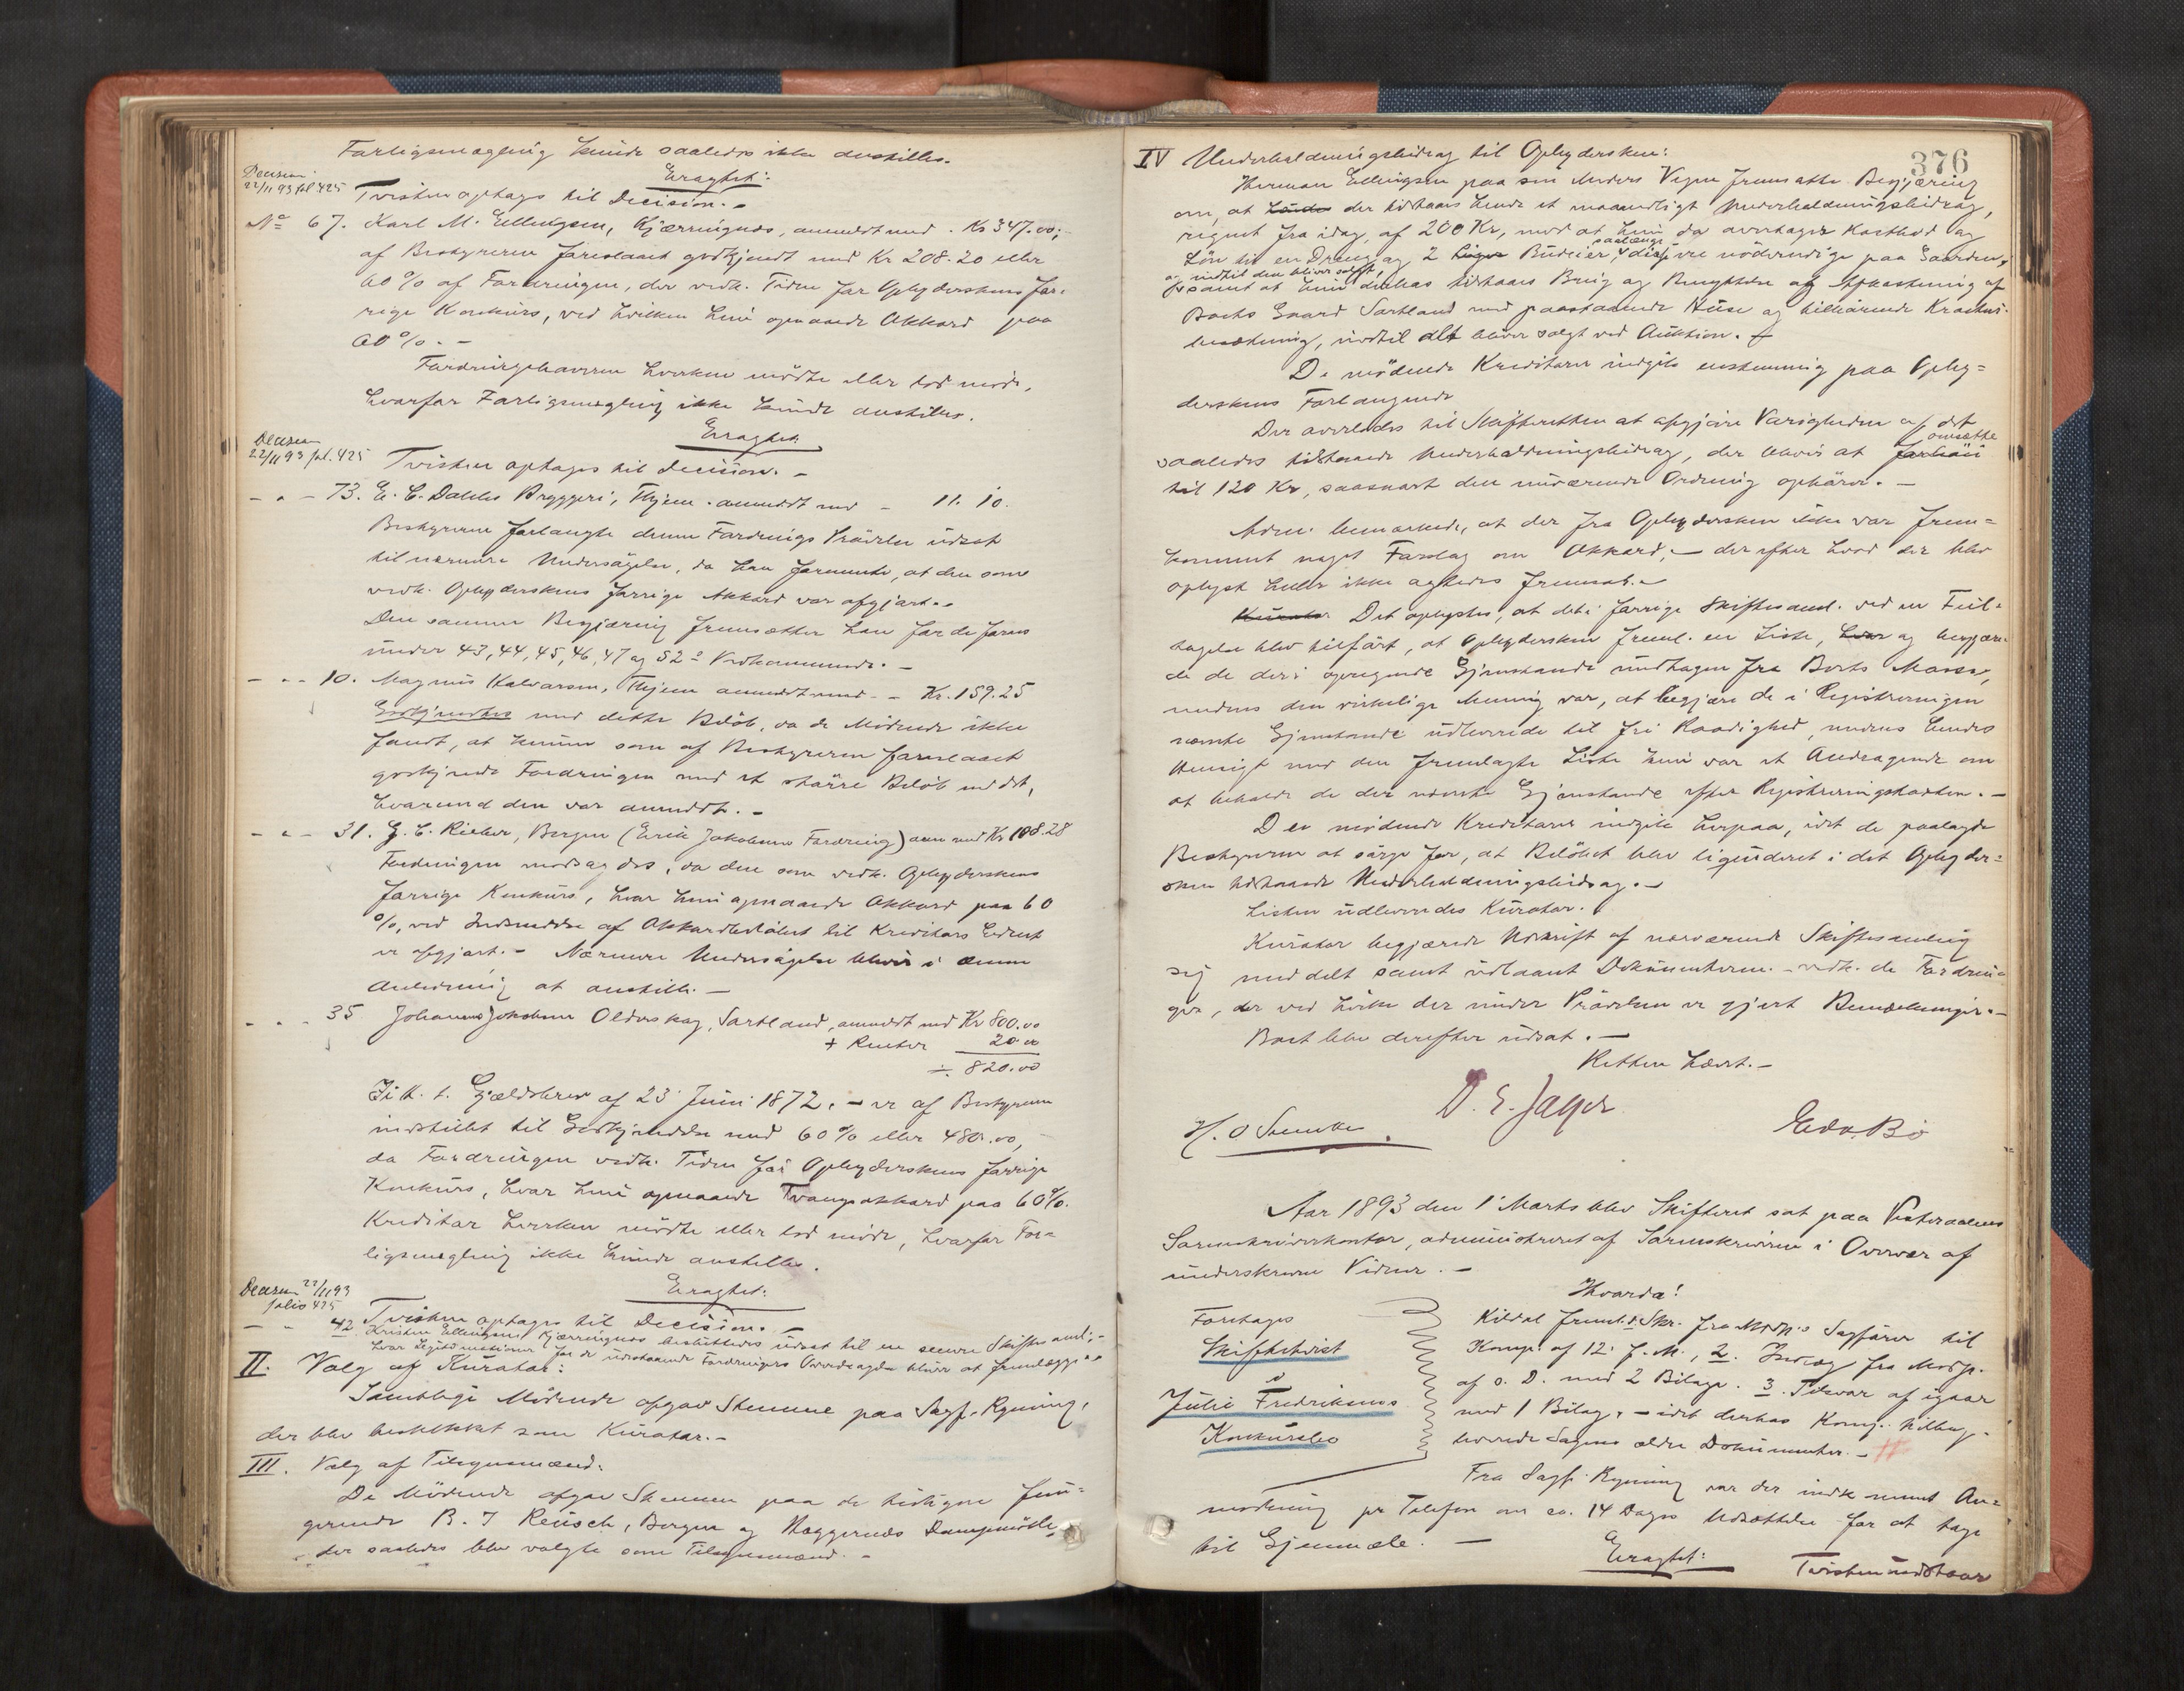 Forligsmægling kunde saaledes ikke anstilles.
Eragtet:
Decision
22/11 93 fol 425
Tvisten optages til Decision. -
No 67. Karl M. Ellingsen, Kjærringnes, anmeldt med . Kr 347.00;
af Bestyreren foreslaaet godkjendt med Kr 208.20 eller
60 % af Fordringen, der vedk. Tiden før Opbyderskens for-
rige Konkurs, ved hvilken hun opnaaede Akkord paa
60 %. -
Fordringshaveren hverken mødte eller lod møde,
hvorfor Forligsmægling ikke kunde anstilles.
Eragtet
Decision
22/11 93 fol. 425
Tvisten optages til Decision. -
- " - 73. E. C. Dahls Bryggeri, Thjem. anmeldt med - 11. 10.
Bestyreren forlangte denne Fordrings Prøvelse udsat
til nærmere Undersøgelse, da han formente, at den som
vedk. Opbyderskens forrige Akkord var afgjort. -
Den samme Begjæring fremsætter han for de føres
under 43, 44, 45, 46, 47 og 52 Vedkommende. -
- " - 10. Magnus Halvorsen, Thjem anmeldt med - Kr. 159.25
Godkjendtes med dette Beløb, da de Mødende ikke
fandt, at kunne som af Bestyreren foreslaaet
godkjende Fordringen med et større Beløb end det,
hvormed den var anmeldt. -
- " - 31. G. C. Rieber, Bergen (Erik Jakobsens Fordring) anm med Kr 108.28
Fordringen modsagdes, da den som vedk. Opbyderskens
forrige Konkurs, hvor hun opnaaede Akkord paa 60
%, ved Indsendelse af Akkordbeløbet til Kreditors
er afgjort. - Nærmere Undersøgelse bliver i denne
Anledning at anstille. -
- " - 35 Johannes Jakobsen Olderskog, Sortland, anmeldt med Kr 800.00
+ Renter 20.00
÷ 820.00
Gjældsbrev af 23 Juni 1872. - er af Bestyreren
indstillet til Godkjendelse med 60 % eller 480.00,
da Fordringen vedk. Tiden før Opbyderskens forrige
Konkurs, hvor hun opnaaede Tvangsakkord paa 60 %.
Kreditor hverken mødte eller lod møde, hvorfor For-
ligsmægling ikke kunde anstilles.
Eragtet:
Decision 22/11 93
folio 425
Tvisten optages til Decision. -
- " 42 Kristen Ellingsens Kjærringnes besluttedes udsat til en senere Skiftesaml; -
hvor Legitimationer for de udestaaende Fordringers Overdragelse bliver at fremlægge. -
II. Valg af Kurator:
Samtlige Mødende afgav Stemme paa Sagf. Ryning,
der blev beskikket som Kurator. -
III. Valg af Tilsynsmænd:
De Mødende afgav Stemmer paa de hidtigen fun-
gerende B. J Reusch, Bergen og Vaggernes Dampmølle,
der saaledes blev valgte som Tilsynsmænd. -
376
IV Underholdningsbidrag til Opbydersken:
Herman Ellingsen paa sin Moders Vegne fremsatte Begjæring
om, at der tilstaaes hende et maanedligt Underholdningsbidrag,
regnet fra idag, af 200 Kr, mod at hun da overtager Kosthold og
Løn til en Dreng og 2 Budeier, saalænge disse ere nødvendige paa Gaarden,
og indtil den bliver solgt,
samt at hun derhos tilstaaes Brug og Benyttelse og Afkastning af
Boets Gaard Sortland med paastaaende Huse og tilhørende Kreaturs-
besætning, indtil alt bliver solgt ved Auktion.
De mødende Kreditorer indgik enstemmig paa Opby-
derskens Forlangende
Der overlodes til Skifteretten at afgjøre Varigheden af det
saaledes tilstaaede Underholdningsbidrag, der bliver at omsætte
til 120 Kr, saasnart den nuværende Ordning ophører. -
Adm. bemærkede, at der fra Opbydersken ikke var frem-
kommet noget Forslag om Akkord, - der efter hvad der blev
oplyst heller ikke agtedes fremsat. -
Det oplystes, at det i forrige Skiftesaml. ved en Feil-
tagelse blev tilført, at Opbydersken freml. en Liste, og begjære-
de de deri opregnede Gjenstande undtagen fra Boets Masse,
medens den virkelige Mening var, at begjære de i Registreringen
nævnte Gjenstande udleverede til fri Raadighed, medens hendes
Hensigt med den fremlagte Liste kun var et Andragende om
at beholde de der nævnte Gjenstande efter Registreringstaxten. -
De mødende Kreditorer indgik herpaa, idet de paalagde
Bestyreren at sørge for, at Beløbet blev ligvideret i det Opbyder-
sken tilstaaede Underholdningsbidrag. -
Listen udleveredes Kurator.
Kurator begjærede Udskrift af nærværende Skiftesamling
sig meddelt samt udlaant Dokumenterne - vedk. de Fordrin-
ger, der ved hvilke der under Prøvelsen er gjort Bemærkninger. -
Boet blev derefter udsat. -
Retten hævet. -
D. E. Jager
Edv. Bø
Aar 1893 den 1 Marts blev Skifteret sat paa Vesteraalens
Sorenskriverkontor, administreret af Sorenskriveren i Overvær af
underskrevne Vidner. -
Hvorda!
Foretages
Skiftetvist
i
Julie Fredriksens
Konkursbo
Kildal freml. 1. Skr. fra Modp.s Sagfører til
Komp. af 12. f. M., 2. Indlæg fra Modp.
af s. D. med 2 Bilage. 3. Tilsvar af igaar
med 1 Bilag, - idet derhos Komp. tilbage-
leverede Sagens ældre Dokumenter. -
Fra Sagf. Ryning var der indkommet An-
modning pr Telefon om ca. 14 Dages Udsættelse for at tage
til Gjenmæle. -
Eragtet: Tvisten udstaar